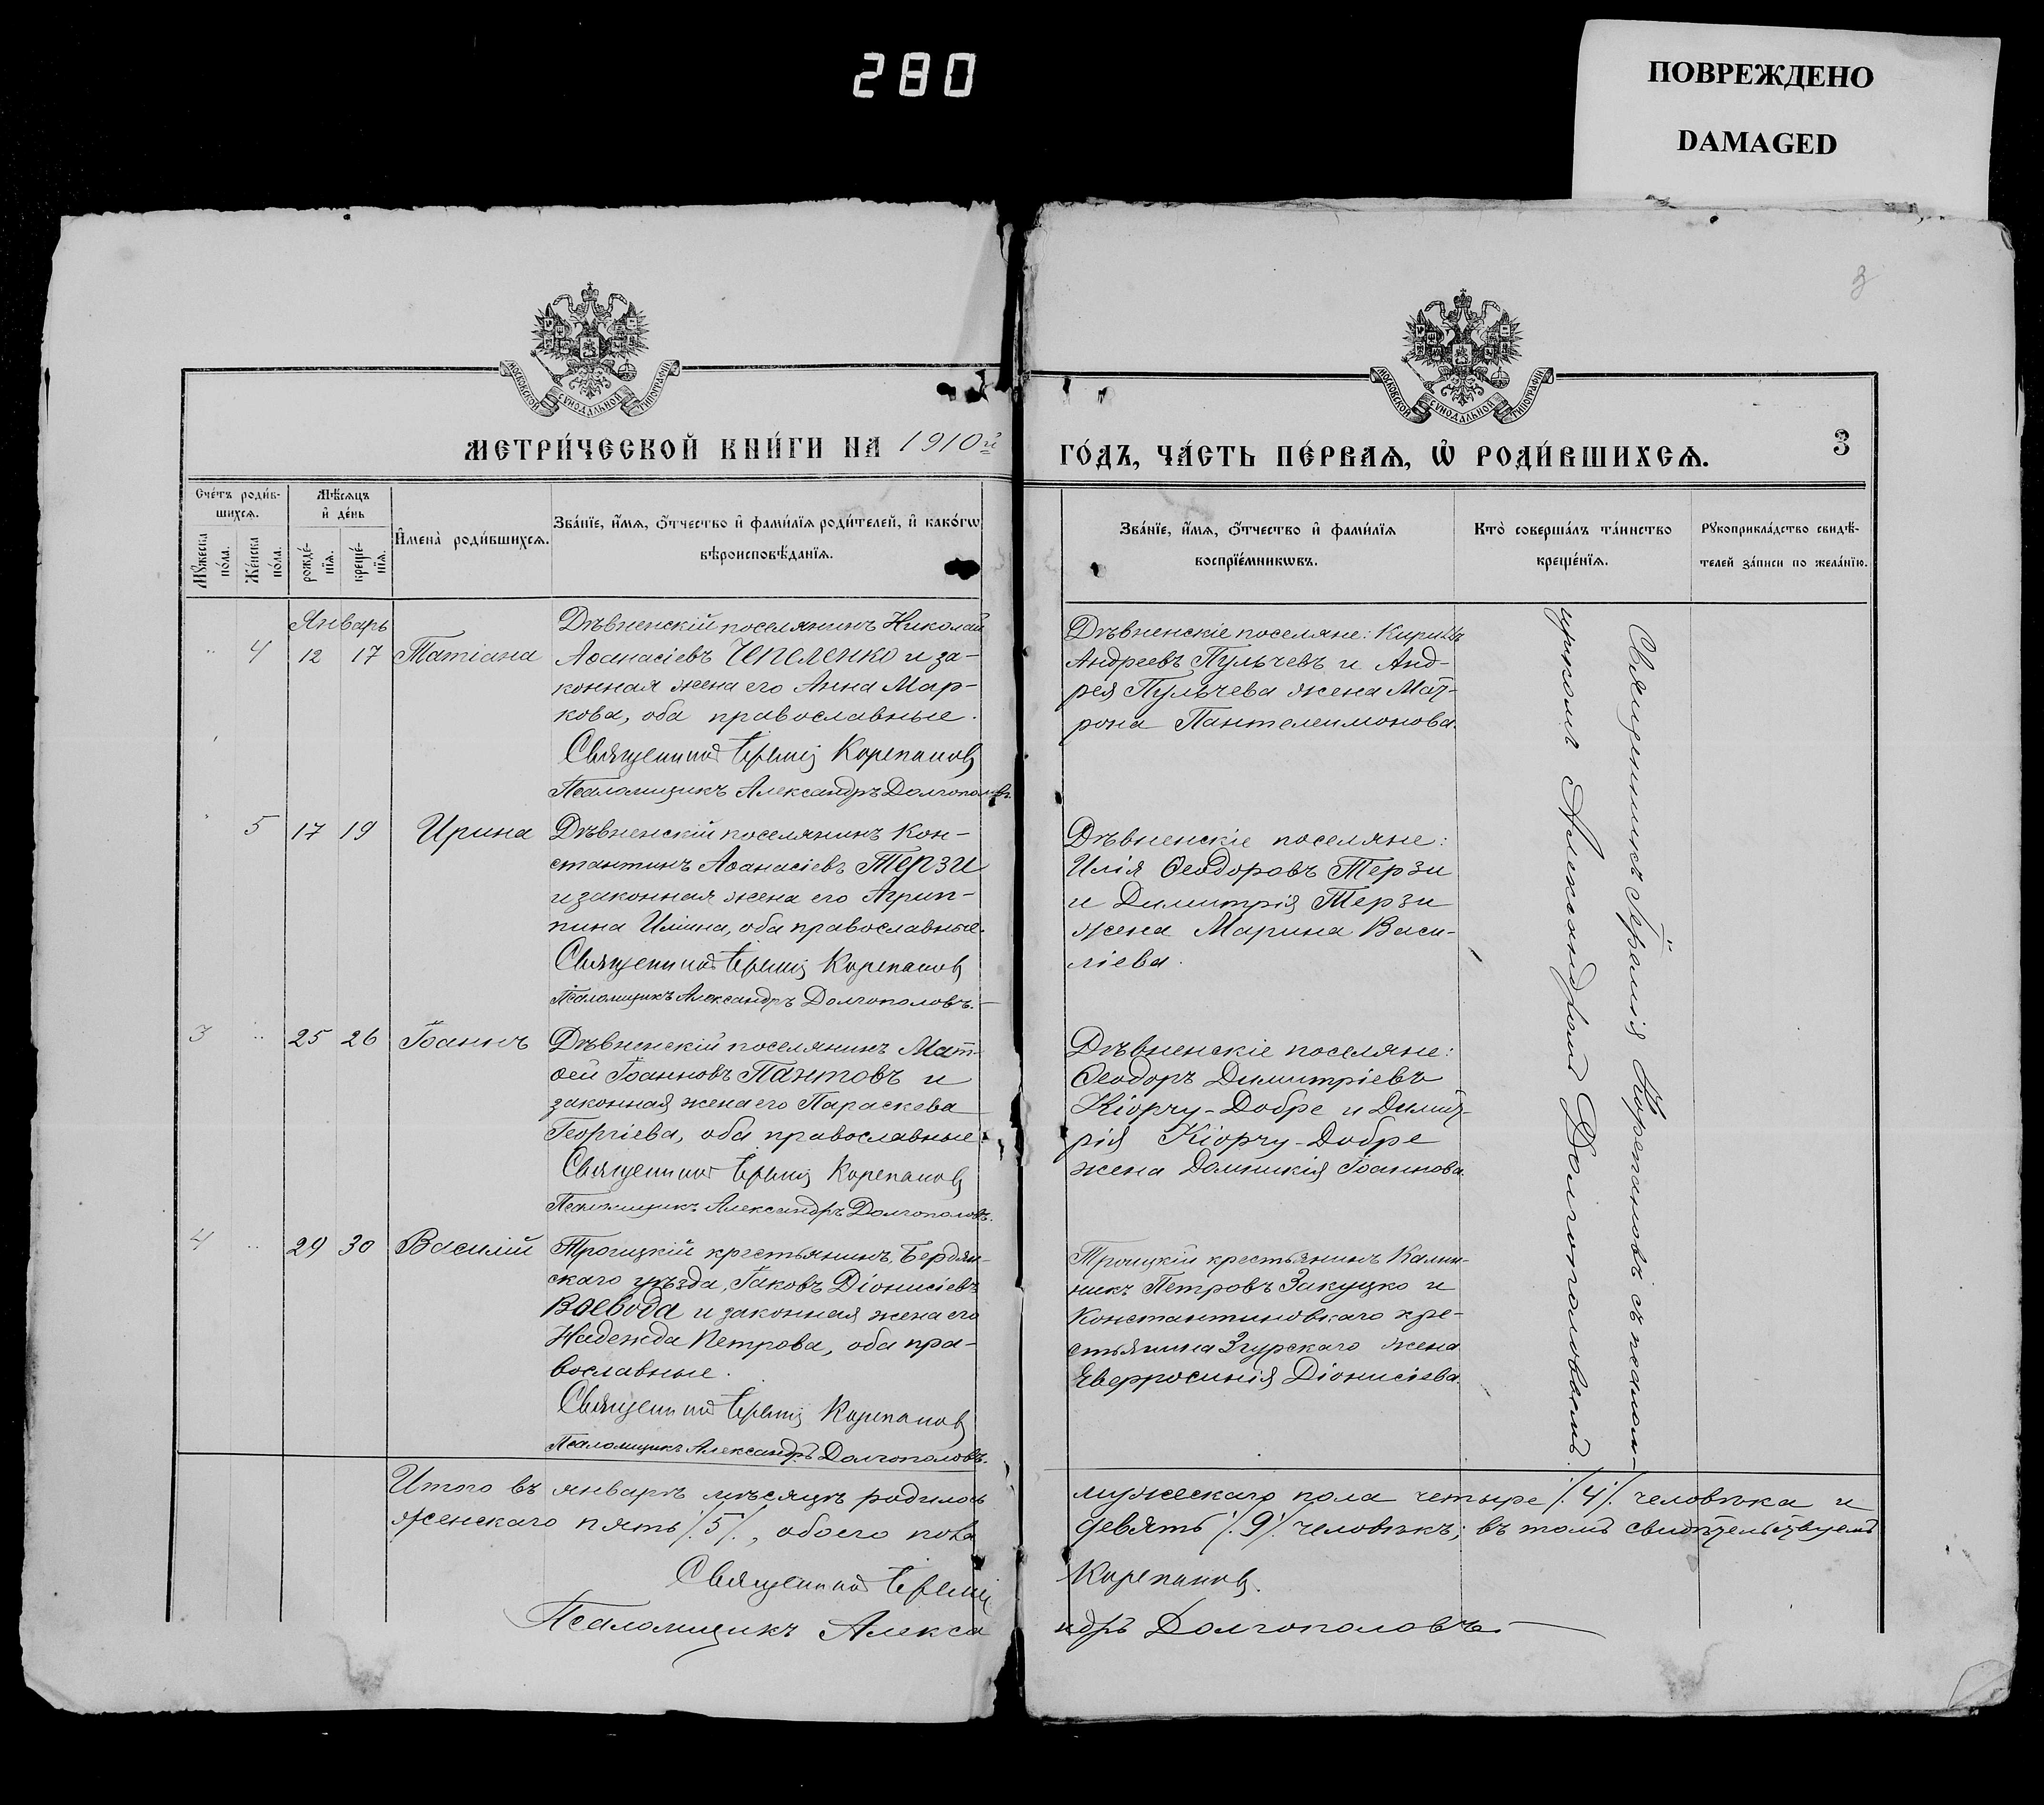 280
ПОВРЕЖДЕНО
DAMAGED
3
МОСКОВСКОЙ СѴНОДАЛЬНОЙ ТИПОГРАФІИ
МОСКОВСКОЙ СѴНОДАЛЬНОЙ ТИПОГРАФІИ
МЕТРИ́ЧЕСКОЙ КНИ́ГИ НА 1910й
ГО́ДЪ, ЧА́СТЬ ПЕ́РВАѦ, Ѡ҆ РОДИ́ВШИХСѦ.
3
Сче́тъ роди́в-
шихсѧ.
Мꙋ́жеска по́ла.
Же́нска по́ла.
Мѣ́сѧцъ
и҆ де́нь
рожде́-
нїѧ.
креще́-
нїѧ.
И҆мена̀ роди́вшихсѧ.
Зва́нїе, и҆́мѧ, ѻ҆́тчество и҆ фами́лїѧ роди́телей, и҆ како́гѡ
вѣроисповѣ́данїѧ.
Зва́нїе, и҆́мѧ, ѻ҆́тчество и҆ фами́лїѧ
воспрїе́мникѡвъ.
Кто̀ соверша́лъ та́инство
креще́нїѧ.
Рꙋкоприкла́дство свидѣ́-
телей за́писи по жела́нїю.
Январь
" 4 12 17 Татіана
Дѣвненскій поселянинъ Николай
Аѳанасіевъ Чепеленко и за-
конная жена его Анна Мар-
кова, оба православные.
Священникъ Іеремія Корепановъ
Псаломщикъ Александръ Долгополовъ.
Дѣвненскіе поселяне: Кириллъ
Андреевъ Пульчевъ и Анд-
рея Пульчева жена Мат-
рона Пантелеимонова.
5 17 19 Ирина
Дѣвненскій поселянинъ Кон-
стантинъ Аѳанасіевъ Терзи
и законная жена его Агрип-
пина Иліина, оба православные.
Священникъ Іеремія Корепановъ
Псаломщикъ Александръ Долгополовъ.
Дѣвненскіе поселяне:
Илія Ѳеодоровъ Терзи
и Димитрія Терзи
жена Марина Васи-
ліева.
3 " 25 26 Іоаннъ
Дѣвненскій поселянинъ Мат-
ѳей Іоанновъ Пантовъ и
законная жена его Параскева
Георгіева, оба православные.
Священникъ Іеремія Корепановъ
Псаломщикъ Александръ Долгополовъ.
Дѣвненскіе поселяне:
Ѳеодоръ Димитріевъ
Кіорчу-Добре и Димит-
рія Кіорчу-Добре
жена Домникія Іоаннова.
4 " 29 30 Василій
Троицкій крестьянинъ, Бердян-
скаго уѣзда, Іаковъ Діонисіевъ
Воевода и законная жена его
Надежда Петрова, оба пра-
вославные.
Священникъ Іеремія Корепановъ
Псаломщикъ Александръ Долгополовъ.
Троицкій крестьянинъ Калин-
никъ Петровъ Закуцко и
Константиновскаго кре-
стьянина Згурскаго жена
Евфросинія Діонисіева.
Священникъ Іеремія Корепановъ съ псалом-
щикомъ Александромъ Долгополовымъ.
Итого въ январѣ мѣсяцѣ родилось
мужескаго пола четыре /.4/. человѣка и
женскаго пять /.5/., обоего пола
девять /.9/. человѣкъ; въ томъ свидѣтельствуемъ
Священникъ Іеремія
Корепановъ.
Псаломщикъ Алекса
ндръ Долгополовъ.